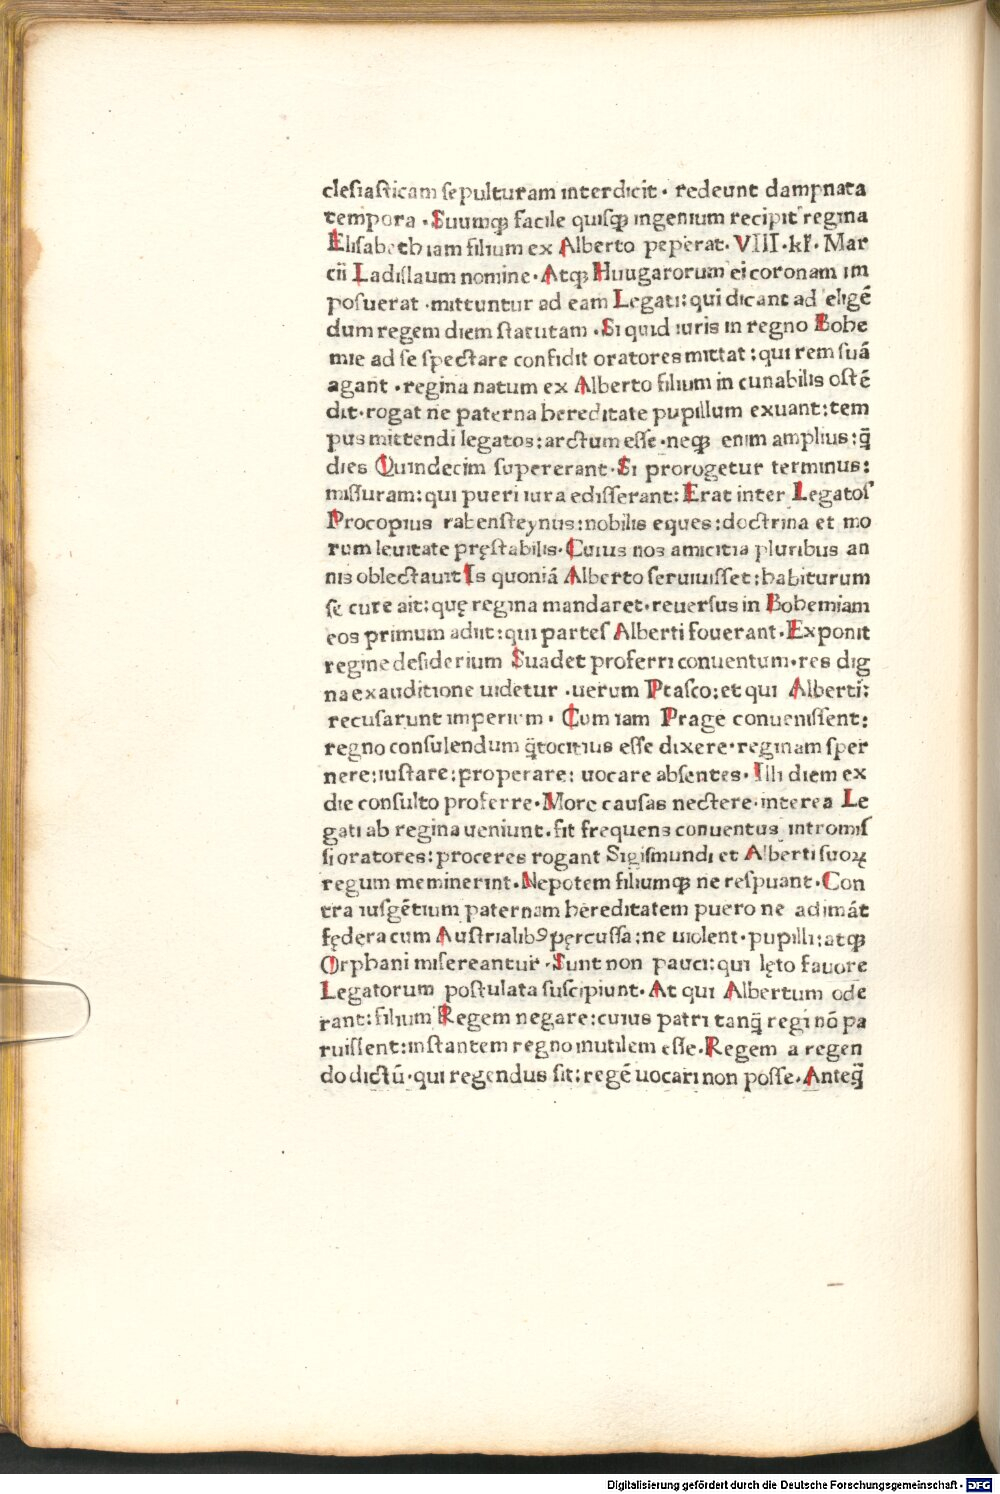 clesiasticam sepulturam interdicit . redeunt dampnata
tempora . Suumqꝫ facile quisqꝫ ingenium recipit regina
Elisabeth iam filium ex Alberto peperat . VIII . kł . Mar
cii Ladislaum nomine . Atqꝫ Huugarorum ei coronam im
posuerat . mittuntur ad eam Legati : qui dicant ad eligē
dum regem diem statutam . Si quid iuris in regno Bohe
mie ad se spectare confidit oratores mittat : qui rem suā
agant . regina natum ex Alberto filium in cunabilis ostē
dit . rogat ne paterna hereditate pupillum exuant : tem
pus mittendi legatos : arctum esse . neqꝫ enim amplius : q̄
dies Quindecim supererant . Si prorogetur terminus :
missuram : qui pueri iura edisserant : Erat inter Legatos
Procopius rabensteynus : nobilis eques : doctrina et mo
rum leuitate pręstabilis . Cuius nos amicitia pluribus an
nis oblectauit Is quoniā Alberto seruiuisset : habiturum
se cure ait : quę regina mandaret . reuersus in Bohemiam
eos primum adiit : qui partes Alberti fouerant . Exponit
regine desiderium Suadet proferri conuentum . res dig
na exauditione uidetur . uerum Ptasco : et qui Alberti :
recusarunt imperium . Cum iam Prage conuenissent :
regno consulendum q̄tocitius esse dixere . reginam sper
nere : iustare : properare : uocare absentes . Illi diem ex
die consulto proferre . More causas nectere . interea Le
gati ab regina ueniunt . fit frequens conuentus intromis
si oratores : proceres rogant Sigismundi et Alberti suoꝝ
regum meminerint . Nepotem filiumqꝫ ne respuant . Con
tra iusgētium paternam hereditatem puero ne adimāt
fędera cum Australibꝰ pęrcussa : ne uiolent . pupilli : atqꝫ
Orphani misereantur . Sunt non pauci : qui lęto fauore
Legatorum postulata suscipiunt . At qui Albertum ode
rant : filium Regem negare : cuius patri tanq̄ regi nō pa
ruissent : instantem regno inutilem esse . Regem a regen
do dictū . qui regendus sit : regē uocari non posse . Anteq̄
Digitalisierung gefördert durch die Deutsche Forschungsgemeinschaft - DFG